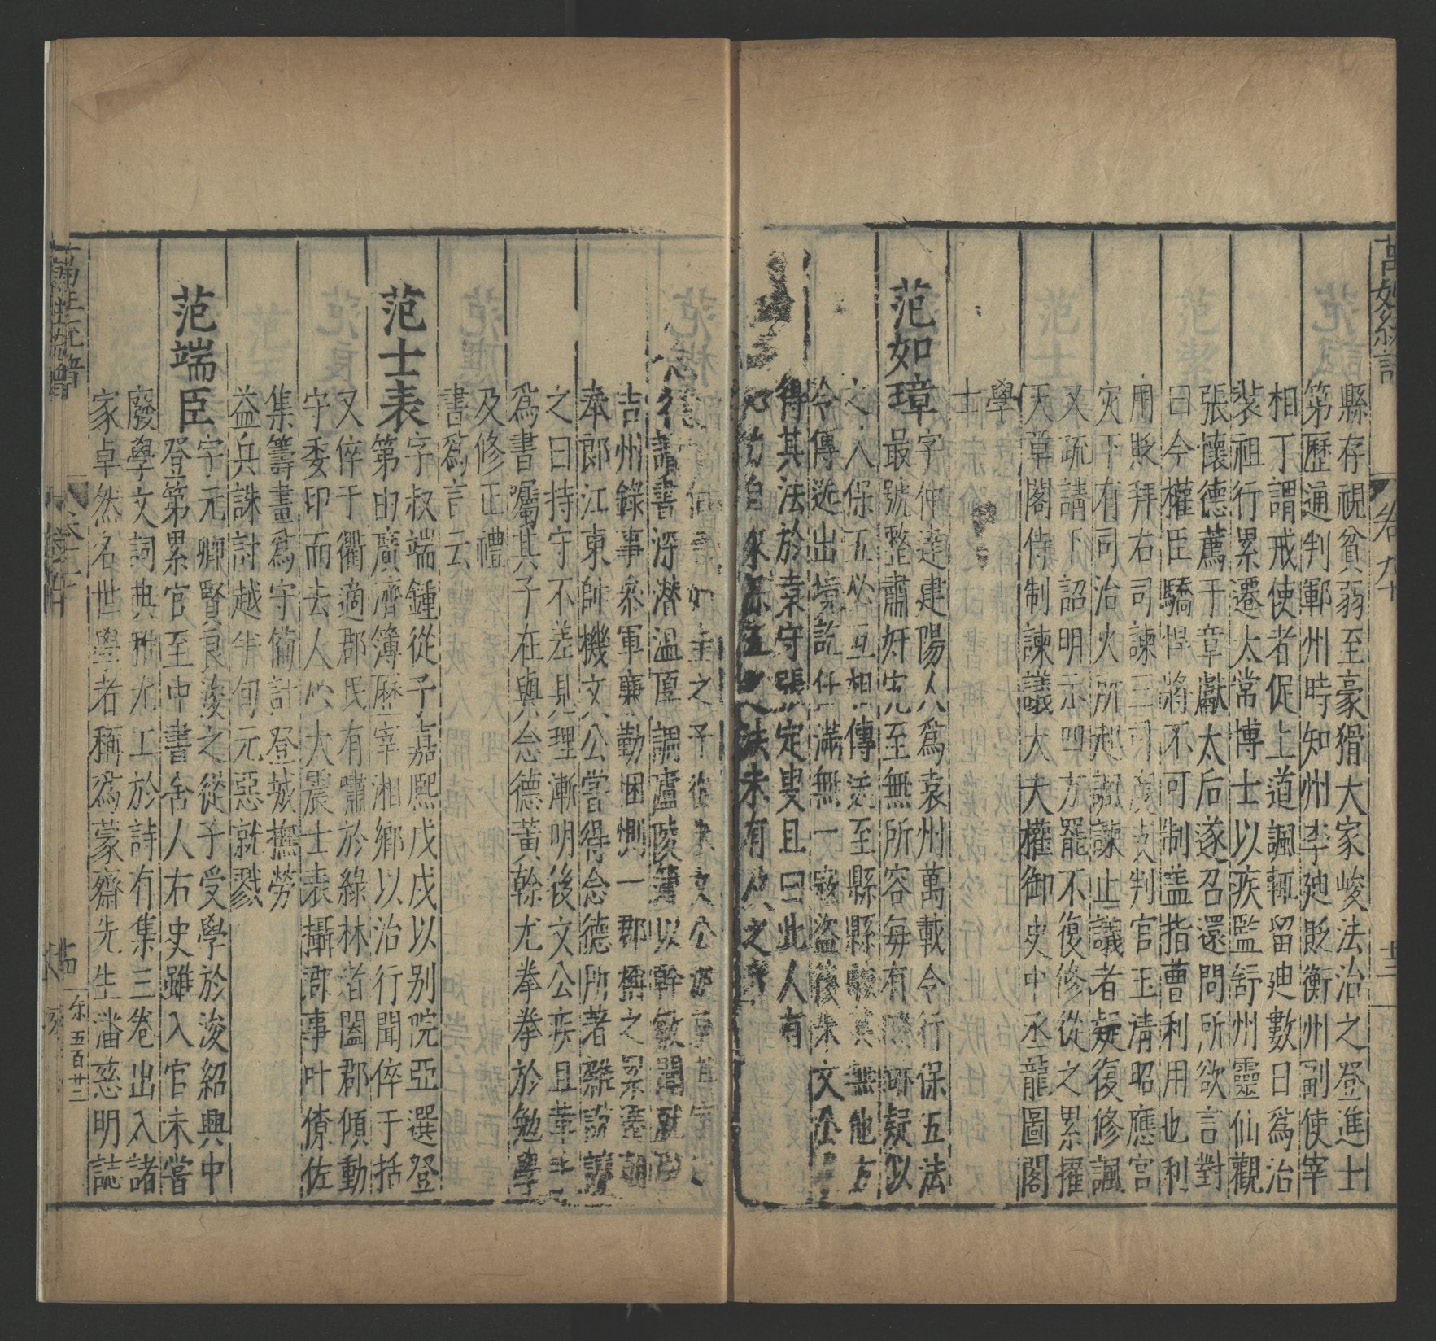 縣存視貧弱至豪猾大家峻法治之登進士
第歷通判鄆州時知州李廸貶衡州副使宰
相丁謂戒使者促上道諷輒留廸數日爲治
裝祖行累遷太常博士以疾監舒州靈仙觀
張懷德薦于章獻太后遂召還問所欲言對
曰今權臣驕悍將不可制盖指曹利用也利
用貶拜右司諫三司度支判官玉清昭應宮
灾下有司治火所起諷諫止議者疑復修諷
又疏請下詔明示四方罷不復修從之累擢
天章閣侍制諫議大夫權御史中丞龍圖閣
學
士
范如璋字仲達建陽人爲袁州萬載令行保五法
最號整肅奸宄至無所容每有疑似
之人保五必互相傳送至縣縣無他方
令傳送出境訖任滿無一竊盜後朱文公
得其法於袁守張定叟且曰此人有
心力自來言保五之法未有及之者
念德讀書深潜溫厚調廬陵簿以幹敏聞
吉州錄事叅軍棄勤悃惻一郡
奉郎江東帥機文公嘗得念德所著雜說謂
之曰持守不差見理漸明後文公疾且革
爲書囑其子在與念德黃榦尤拳拳於勉學
及修正禮
書爲言云
范士表字叔端鍾從子嘉熙戊戌以别院亞選登
第由廣濟簿歷宰湘鄉以治行聞倅于括
又倅于衢適郡民有嘯於綠林者闔郡傾動
守委印而去人心大震士表攝郡事叶僚佐
集籌畫爲守禦計登城撫勞
益兵誅討越
旬元惡就戮
范端臣字元卿賢良浚之從子受學於浚紹興中
登第累官至中書舍人右史雖入官未嘗
廢學文詞典雅尤工於詩有集三卷出入諸
家卓然名世學者稱爲蒙齋先生潘慈明誌